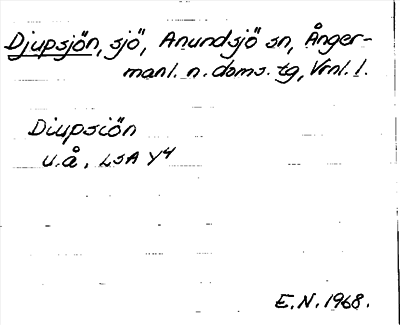 Djupsjön, sjö, Anundsjö sn, Ånger-
manl. n. doms. tg, Vrnl. l.
Diupsiön
u.å. LSA Y4
E.N. 1968.